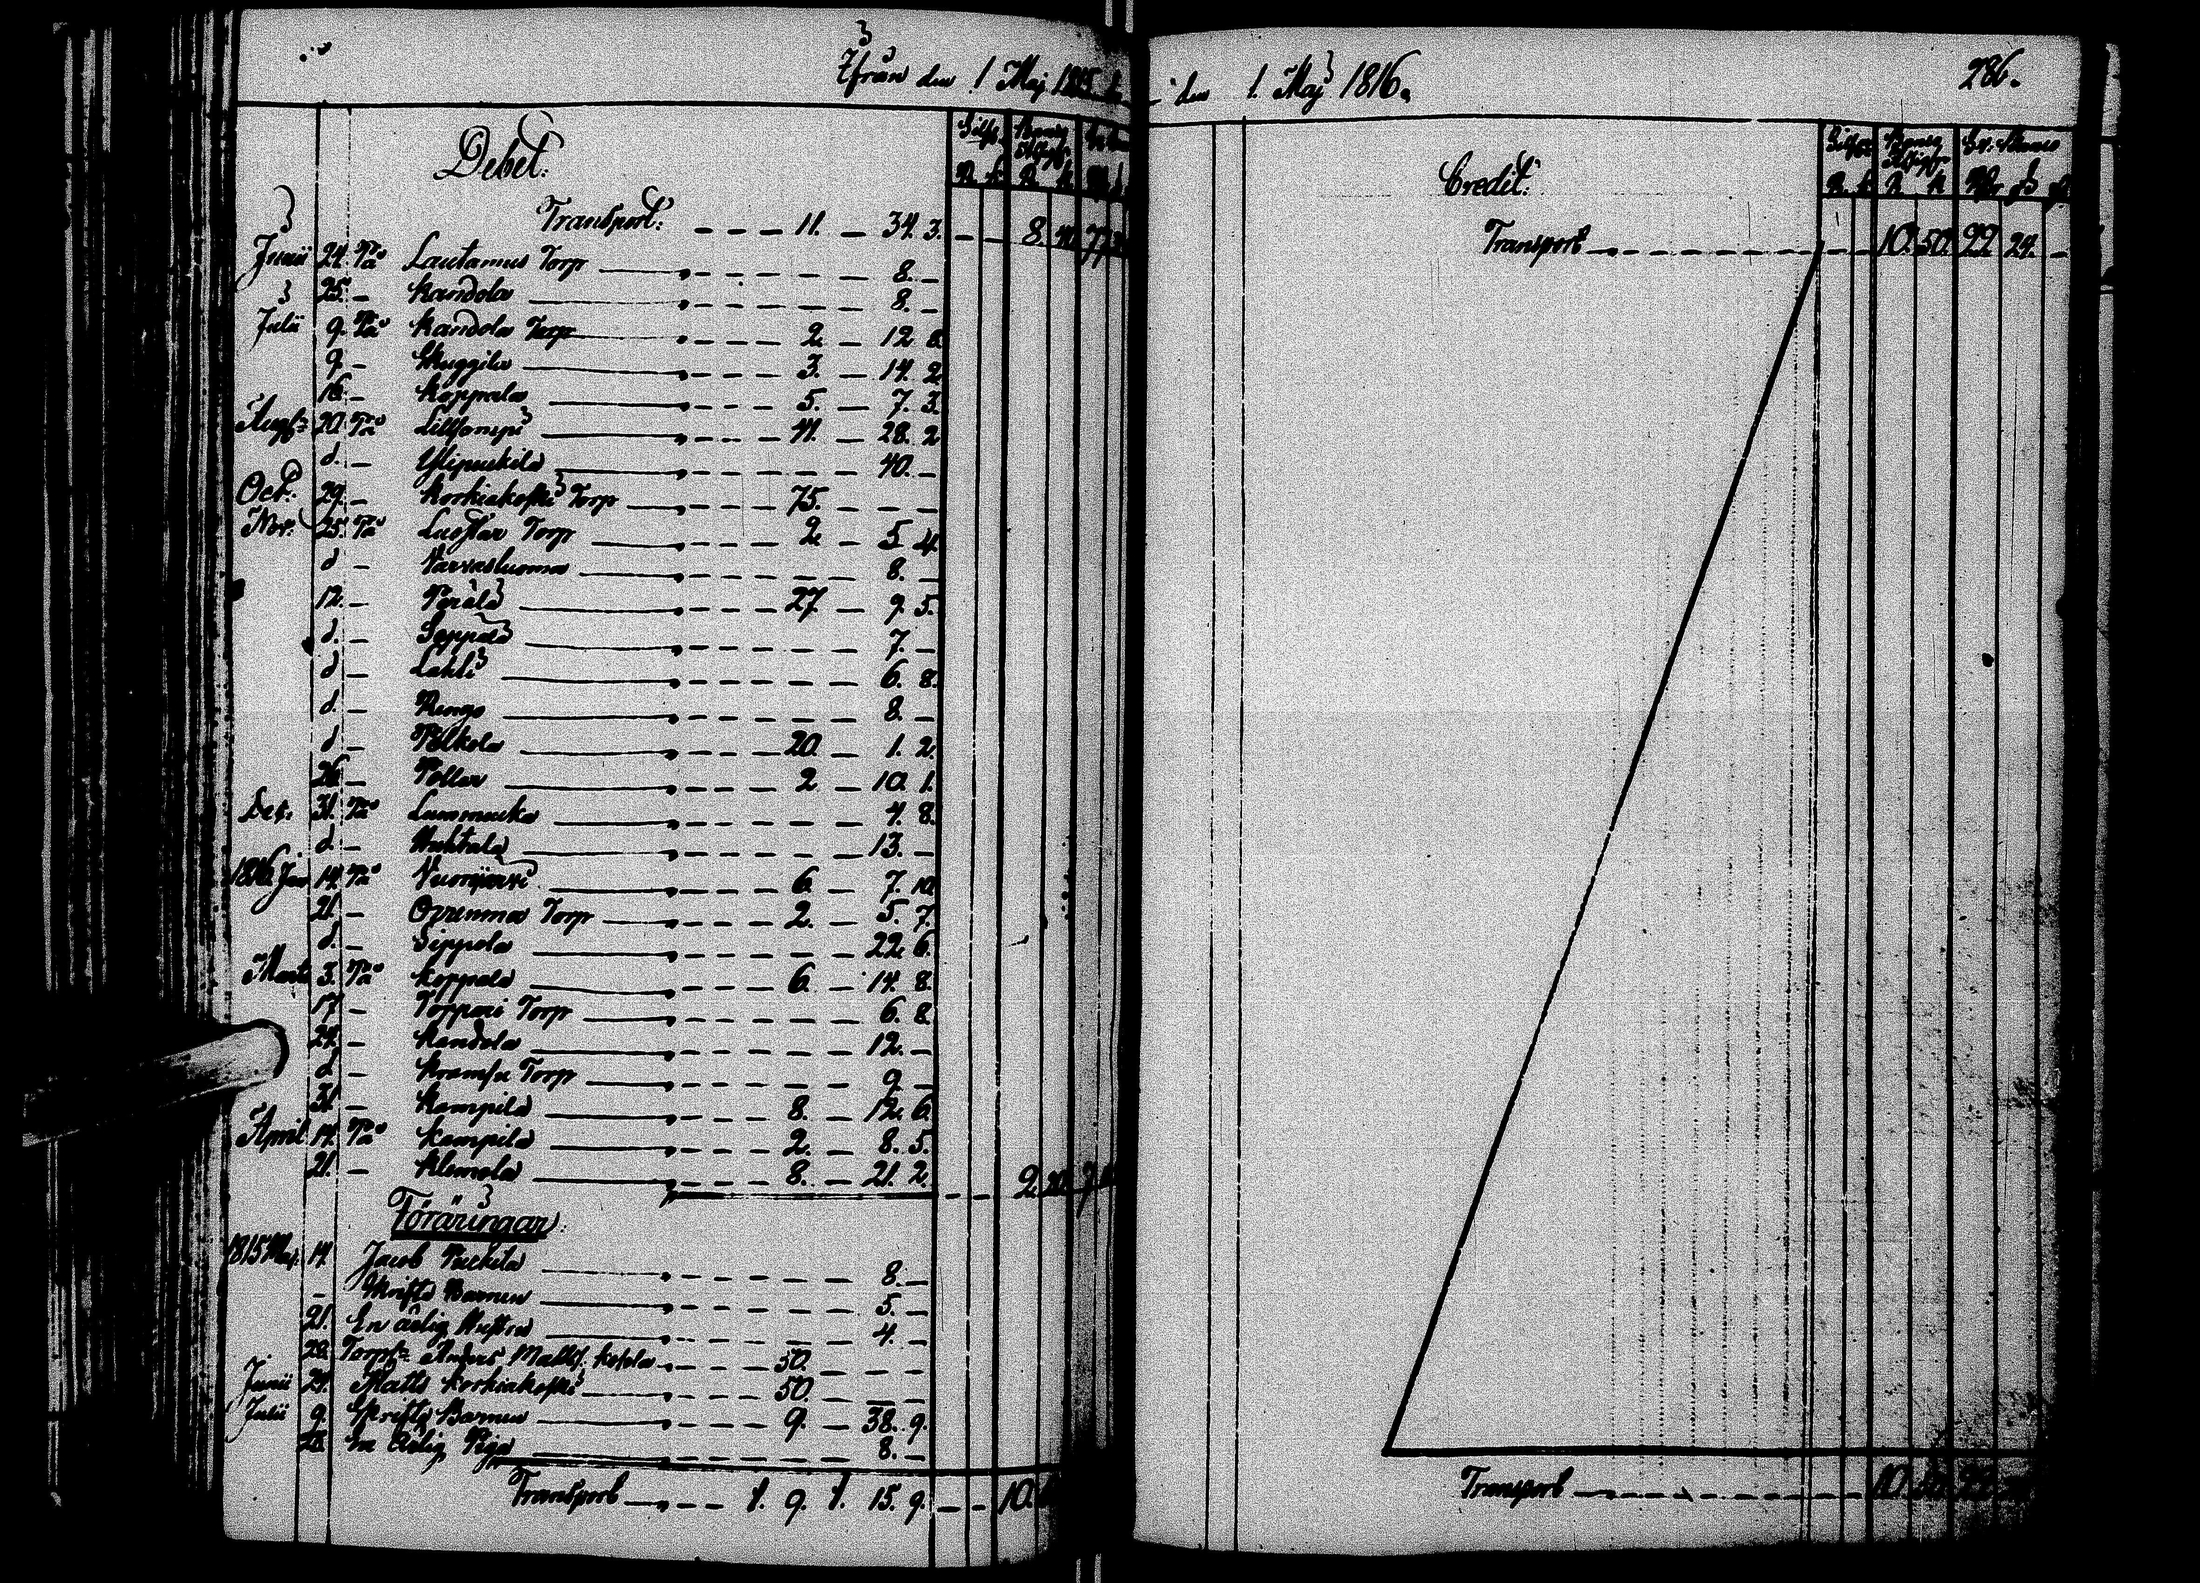 Ifrån den 1 Maj 1815 t.
Debet.
Silfv. Banco Sedlar
R. k. R. k.
Transport: 11. 34. 3. 8. 7.
Junii 24. På Lautamus Torp 8.
25. Kandola 8.
Julii 9. På Kandola Torp 2. 12 8.
9. Skuggila 3. 14. 2.
16. Koppala 5. 7. 3.
Aug. 20. På Lillkampi 41. 28. 2
d. Ylipuckila 40.
Oct. 29. Korkiakoski Torp 75.
Nov. 25. På Lustar Torp 2. 5 4.
d Varvasluoma 8.
12. Perälä 27. 9. 5.
d. Seppälä 7.
d Lahti 6. 8.
d. Rengo 8.
d Pelkola 20. 1. 2.
26. Potter 2 10. 1.
Dec. 31. På Lummuka 4. 8.
d. Huhtala 13.
1816 Jan 14. På Vuorijärvi 6. 7. 10.
21. Opruuma Torp 2. 5. 7.
d. Sippola 22. 6.
Martii 3. På Koppala 6. 14. 8.
17. Toppari Torp 6. 8.
24. Kandola 12.
d Kramsu Torp 9
31. Kampila 8. 12. 6.
April 14. På Kampila 2. 8. 5.
21. Klemola 8. 21. 2. 2. 20. 9.
Föräringar.
1815 Maj. 14. Jacob Puckila 8.
Skrifts Barnen 5.
21. En ärlig Hustru 4.
28. Torp. Anders Matts. 50.
Junii 24. Matts Korkiakoski 50.
Julii 9. Skrifts Barnen 9. 38. 9.
23. En ärlig Piga 8.
Transport 9. 15. 9. 10.
den 1. Maj 1816.
286.
Credit.
Silfver
R. k. R. k.
Transport 10. 50. 22 24.
Transport 10.